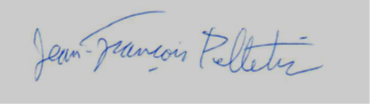 Jean-François Pelletier